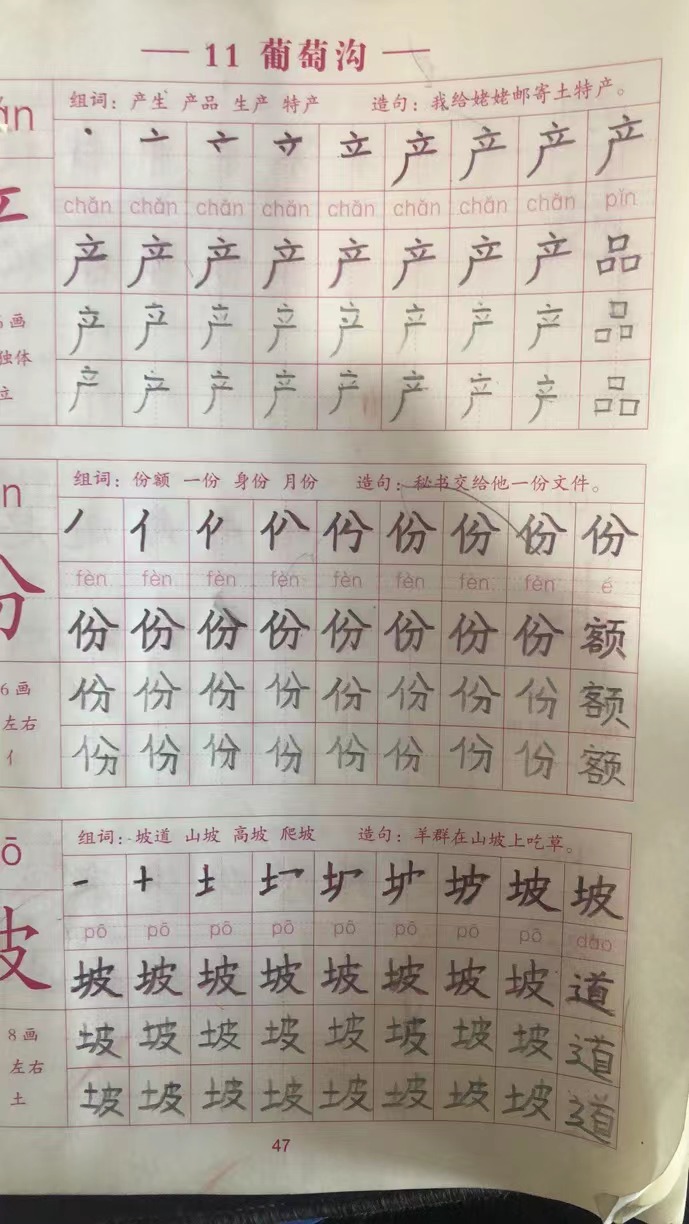 11 葡萄沟
组词：产生 产品 生产 特产 造句：我给姥姥邮寄土特产。
丶 亠 产 产 产 产
chǎn chǎn chǎn chǎn chǎn chǎn chǎn chǎn pǐn
产 产 产 产 产 产 产 产 品
画
产 产 产 产 产 产 产 产 品
独体
立
产 产 产 产 产 产 产 产 品
组词：份额 一份 身份 月份 造句：秘书交给他一份文件。
丿 亻 份 份 份 份
fèn fèn fèn fèn fèn fèn fèn fèn é
份
份 份 份 份 份 份 份 份 额
6画
份 份 份 份 份 份 份 份 额
左右
亻
份 份 份 份 份 份 份 份 额
ō
组词：坡道 山坡 高坡 爬坡 造句：羊群在山坡上吃草。
一 十 土 坡 坡
pō pō pō pō pō pō pō pō dào
坡 坡 坡 坡 坡 坡 坡 坡 道
8画
坡 坡 坡 坡 坡 坡 坡 坡 道
左右
土
坡 坡 坡 坡 坡 坡 坡 坡 道
47